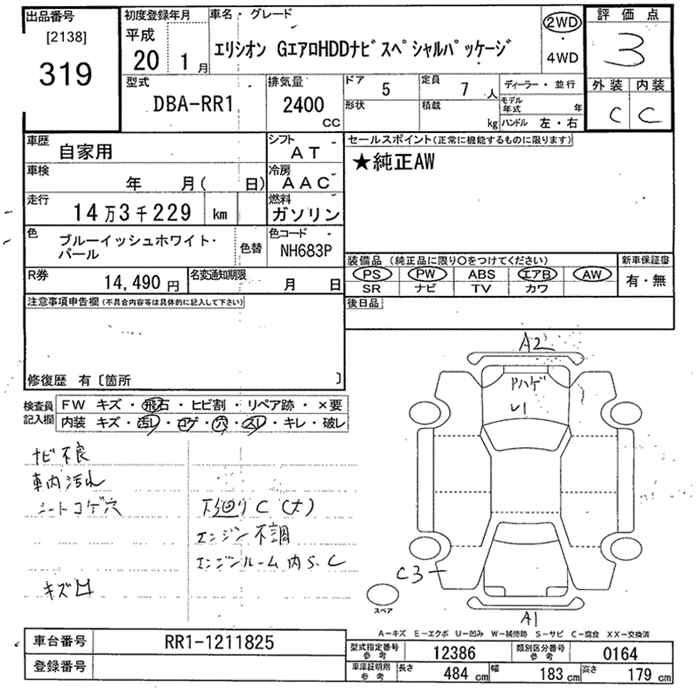 出品番号
[2138]
319
初度登録年月
平成
20 1月
車名・グレード
エリシオン GエアロHDDナビスペシャルパッケージ
2WD
・
4WD
評価点
3
外装 内装
C C
型式
DBA-RR1
排気量
2400
CC
ドア
5
定員
7人
形状
積載
kg
ディーラー・並行
モデル年式 年
ハンドル 左・右
車歴
自家用
シフト
AT
車検
年 月( 日)
冷房
AAC
走行
14万3千229 km
燃料
ガソリン
色
ブルーイッシュホワイト・
パール
色替
色コード
NH683P
R券
14,490円
名変通知期限
月 日
セールスポイント(正常に機能するものに限ります)
★純正AW
装備品(純正品に限り○をつけてください)
PS PW ABS エアB AW
SR ナビ TV カワ
新車保証書
有・無
後日品
注意事項申告欄(不具合内容等は具体的に記入して下さい)
修復歴 有〔箇所 〕
検査員
記入欄
FW キズ・飛石・ヒビ割・リペア跡・×要
内装 キズ・汚レ・コゲ・穴・スレ・キレ・破レ
ナビ不良
車内汚れ
シートコゲ穴
下廻りC(大)
エンジン不調
エンジンルーム内S.C
キズ凹
A2
ハゲ
U1
C3
A1
スペア
A-キズ E-エクボ U-凹み W-補修跡 S-サビ C-腐食 XX-交換済
車台番号
RR1-1211825
登録番号
型式指定番号
参考
12386
類別区分番号
参考
0164
車庫証明用
参考
長さ
484 cm
幅
183 cm
高さ
179 cm